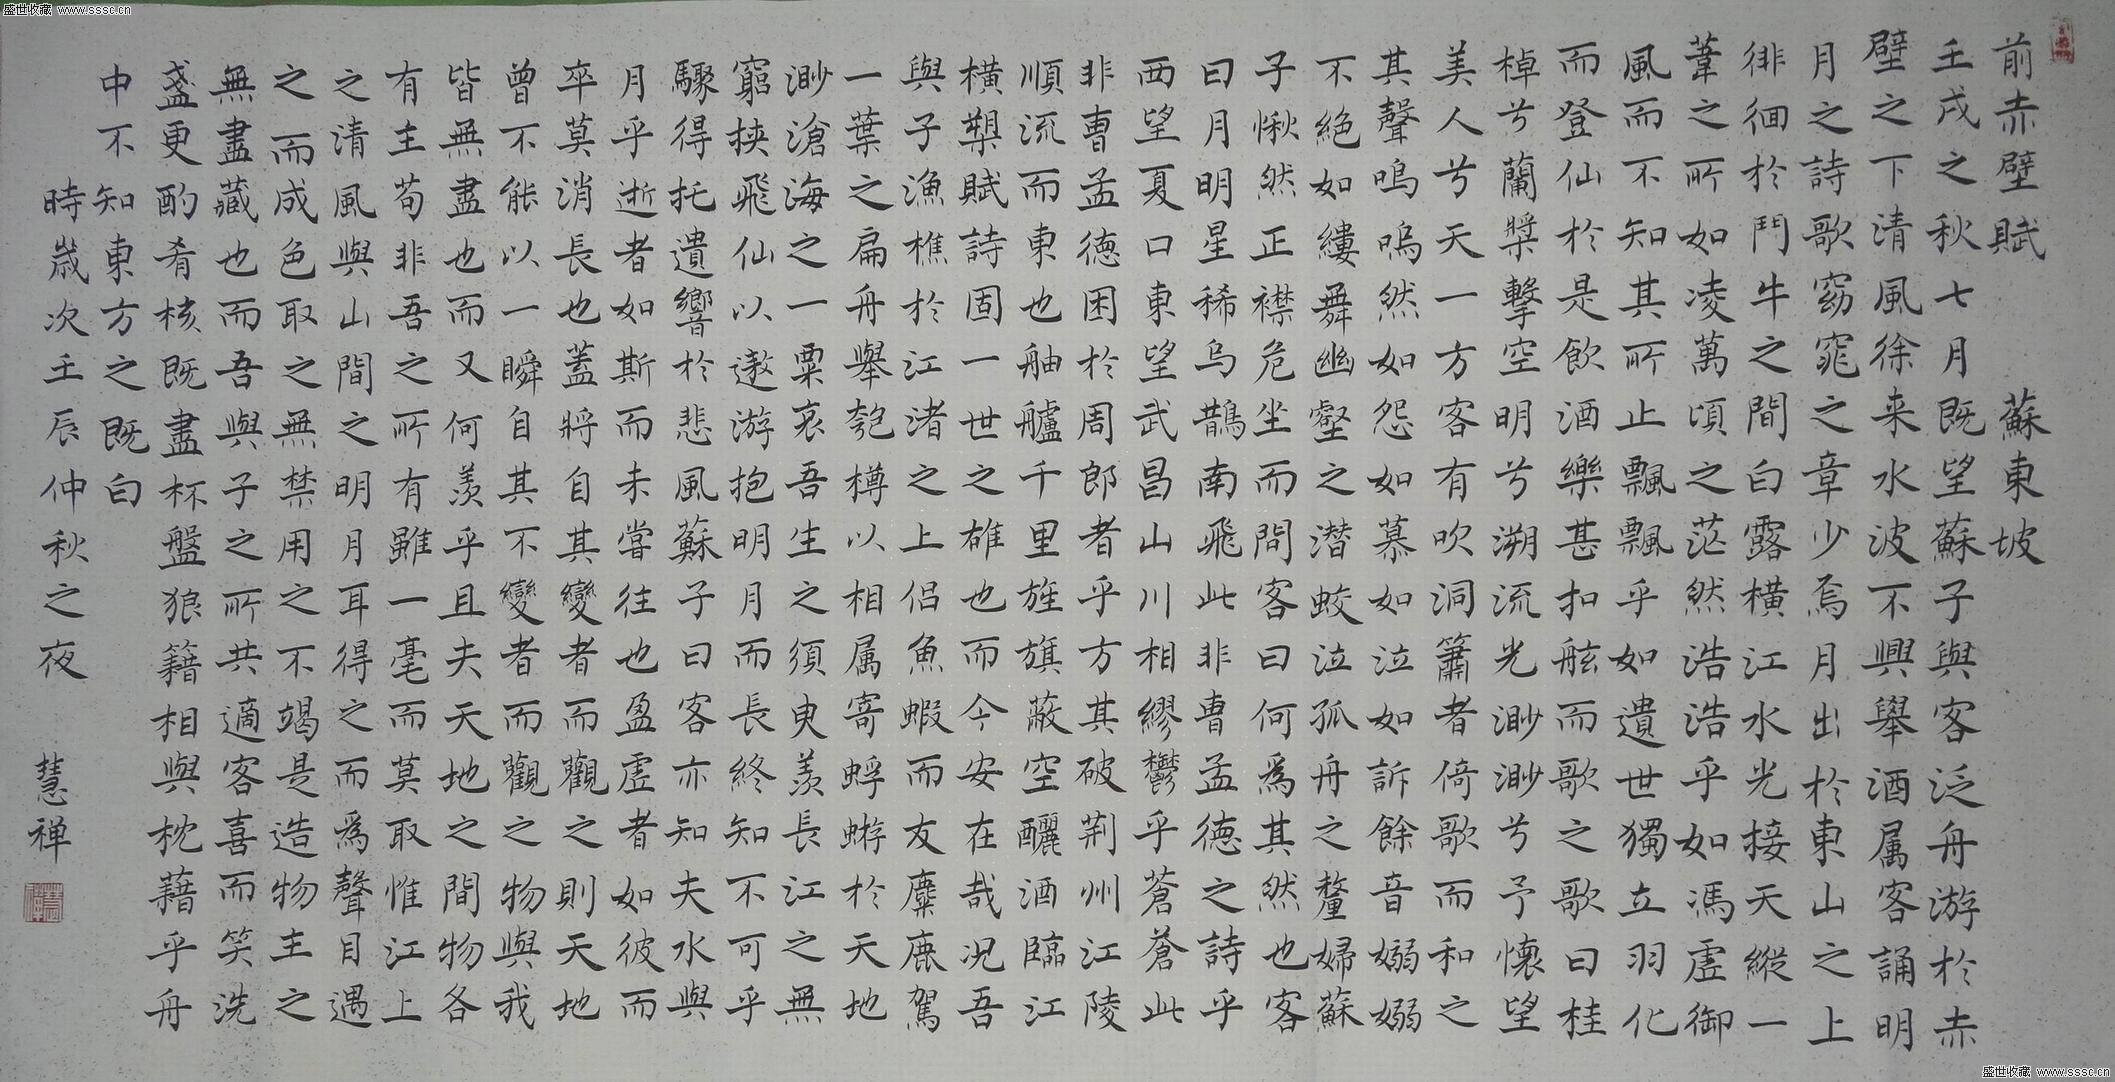 盛世收藏 www.sssc.cn
前赤壁賦 蘇東坡
壬戌之秋七月既望蘇子與客泛舟游於赤
壁之下清風徐来水波不興舉酒属客誦明
月之詩歌窈窕之章少焉月出於東山之上
徘徊於鬥牛之間白露橫江水光接天縱一
葦之所如凌萬頃之茫然浩浩乎如馮虛御
風而不知其所止飄飄乎如遺世獨立羽化
而登仙於是飲酒樂甚扣舷而歌之歌曰桂
棹兮蘭槳擊空明兮溯流光渺渺兮予懷望
美人兮天一方客有吹洞簫者倚歌而和之
其聲嗚嗚然如怨如慕如泣如訴餘音嫋嫋
不絕如縷舞幽壑之潜蛟泣孤舟之釐婦蘇
子愀然正襟危坐而問客曰何為其然也客
曰月明星稀烏鵲南飛此非曹孟德之詩乎
西望夏口東望武昌山川相繆鬱乎蒼蒼此
非曹孟德困於周郎者乎方其破荊州江陵
順流而東也舳艫千里旌旗蔽空釃酒臨江
橫槊賦詩固一世之雄也而今安在哉況吾
與子漁樵於江渚之上侶魚蝦而友麋鹿駕
一葉之扁舟舉匏樽以相属寄蜉蝣於天地
渺滄海之一粟哀吾生之須臾羨長江之無
窮挾飛仙以遨游抱明月而長終知不可乎
驟得托遺響於悲風蘇子曰客亦知夫水與
月乎逝者如斯而未嘗往也盈虛者如彼而
卒莫消長也蓋將自其變者而觀之則天地
曾不能以一瞬自其不變者而觀之物與我
皆無盡也而又何羨乎且夫天地之間物各
有主苟非吾之所有雖一毫而莫取惟江上
之清風與山間之明月耳得之而為聲目遇
之而成色取之無禁用之不竭是造物主之
無盡藏也而吾與子之所共適客喜而笑洗
盞更酌肴核既盡杯盤狼籍相與枕藉乎舟
中不知東方之既白
時歲次壬辰仲秋之夜 慧禅
盛世收藏 www.sssc.cn